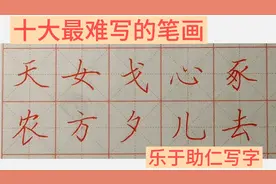 十大最难写的笔画
天女戈心豕
农方夕儿去
乐于助仁写字